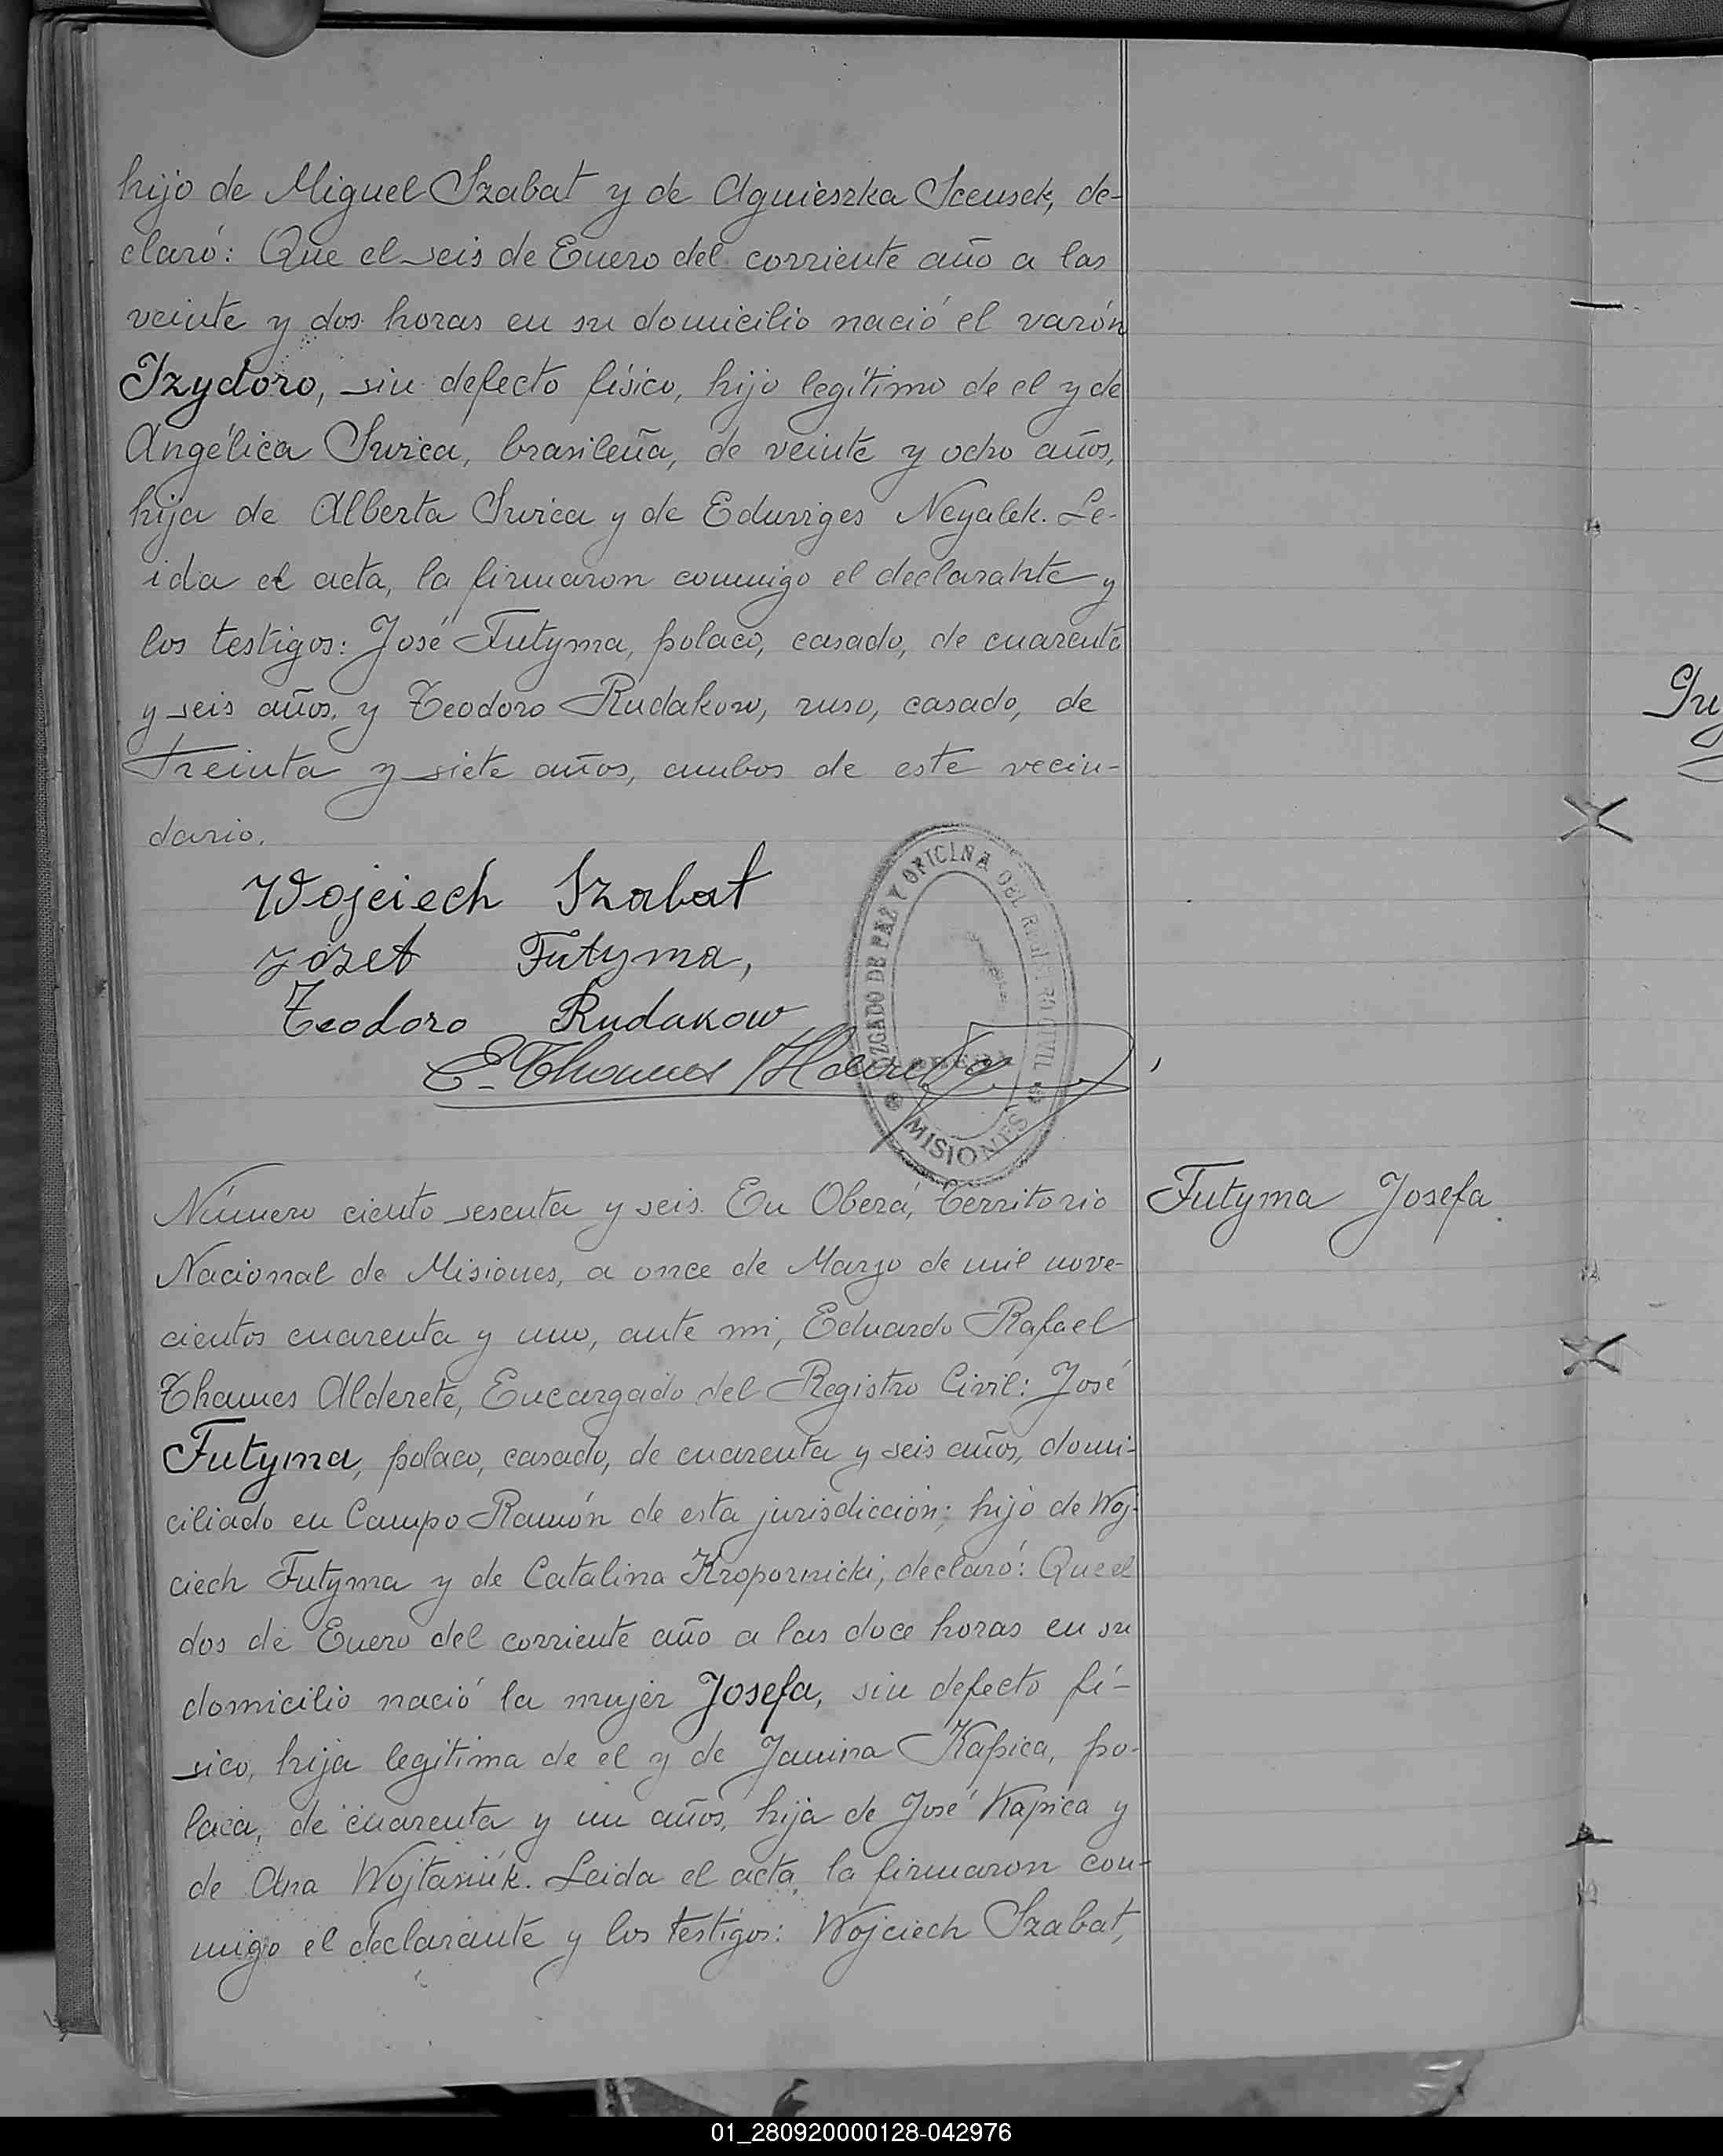 hijo de Miguel Szabat y de Agnieszka Scensek, de-
claró: Que el seis de Enero del corriente año a las
veinte y dos horas en su domicilio nació el varón
Izydoro, sin defecto físico, hijo legítimo de el y de
Angélica Swica, brasileña, de veinte y ocho años,
hija de Alberta Swica y de Eduviges Neyalek. Le-
ida el acta, la firmaron conmigo el declarante y
los testigos: José Futyma, polaco, casado, de cuarenta
y seis años, y Teodoro Rudakow, ruso, casado, de
treinta y siete años, ambos de este vecin-
dario.
Wojciech Szabat
Józef Futyma,
Teodoro Rudakow
E. Thames
ZGADO DE PAZ Y OFICINA DEL CIVIL
MISIONES
Número ciento sesenta y seis. En Oberá, Territorio
Futyma Josefa.
Nacional de Misiones, a once de Marzo de mil nove-
cientos cuarenta y uno, ante mi, Eduardo Rafael
Thames Alderete, Encargado del Registro Civil: José
Futyma, polaco, casado, de cuarenta y seis años, domi-
ciliado en Campo Ramón de esta jurisdicción; hijo de Woj-
ciech Futyma y de Catalina Kropornicki, declaró: Que el
dos de Enero del corriente año a las doce horas en su
domicilio nació la mujer Josefa, sin defecto fí-
sico, hija legítima de el y de Janina Kapica, po-
laca, de cuarenta y un años, hija de José Kapica y
de Ana Wojtasiuk. Leida el acta, la firmaron con-
migo el declarante y los testigos: Wojciech Szabat,
01_280920000128-042976